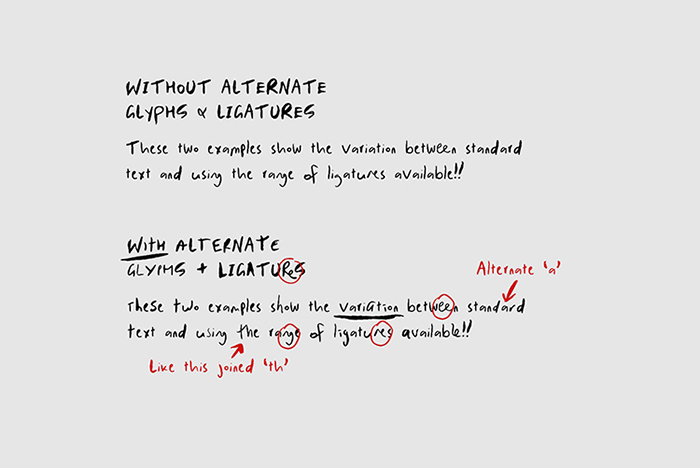 WITHOUT ALTERNATE
GLYPHS & LIGATURES
These two examples show the variation between standard
text and using the range of ligatures available!!
WITH ALTERNATE
GLYPHS + LIGATURES
Alternate 'a'
These two examples show the variation between standard
text and using the range of ligatures available!!
Like this joined 'th'